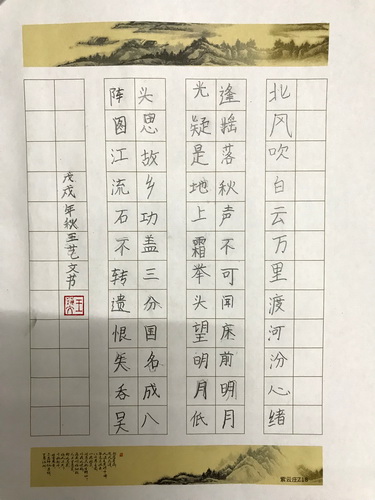 北风吹白云万里渡河汾心绪
逢摇落秋声不可闻床前明月
光疑是地上霜举头望明月低
头思故乡功盖三分国名成八
阵图江流石不转遗恨失吞吴
戊戌年秋王艺文书